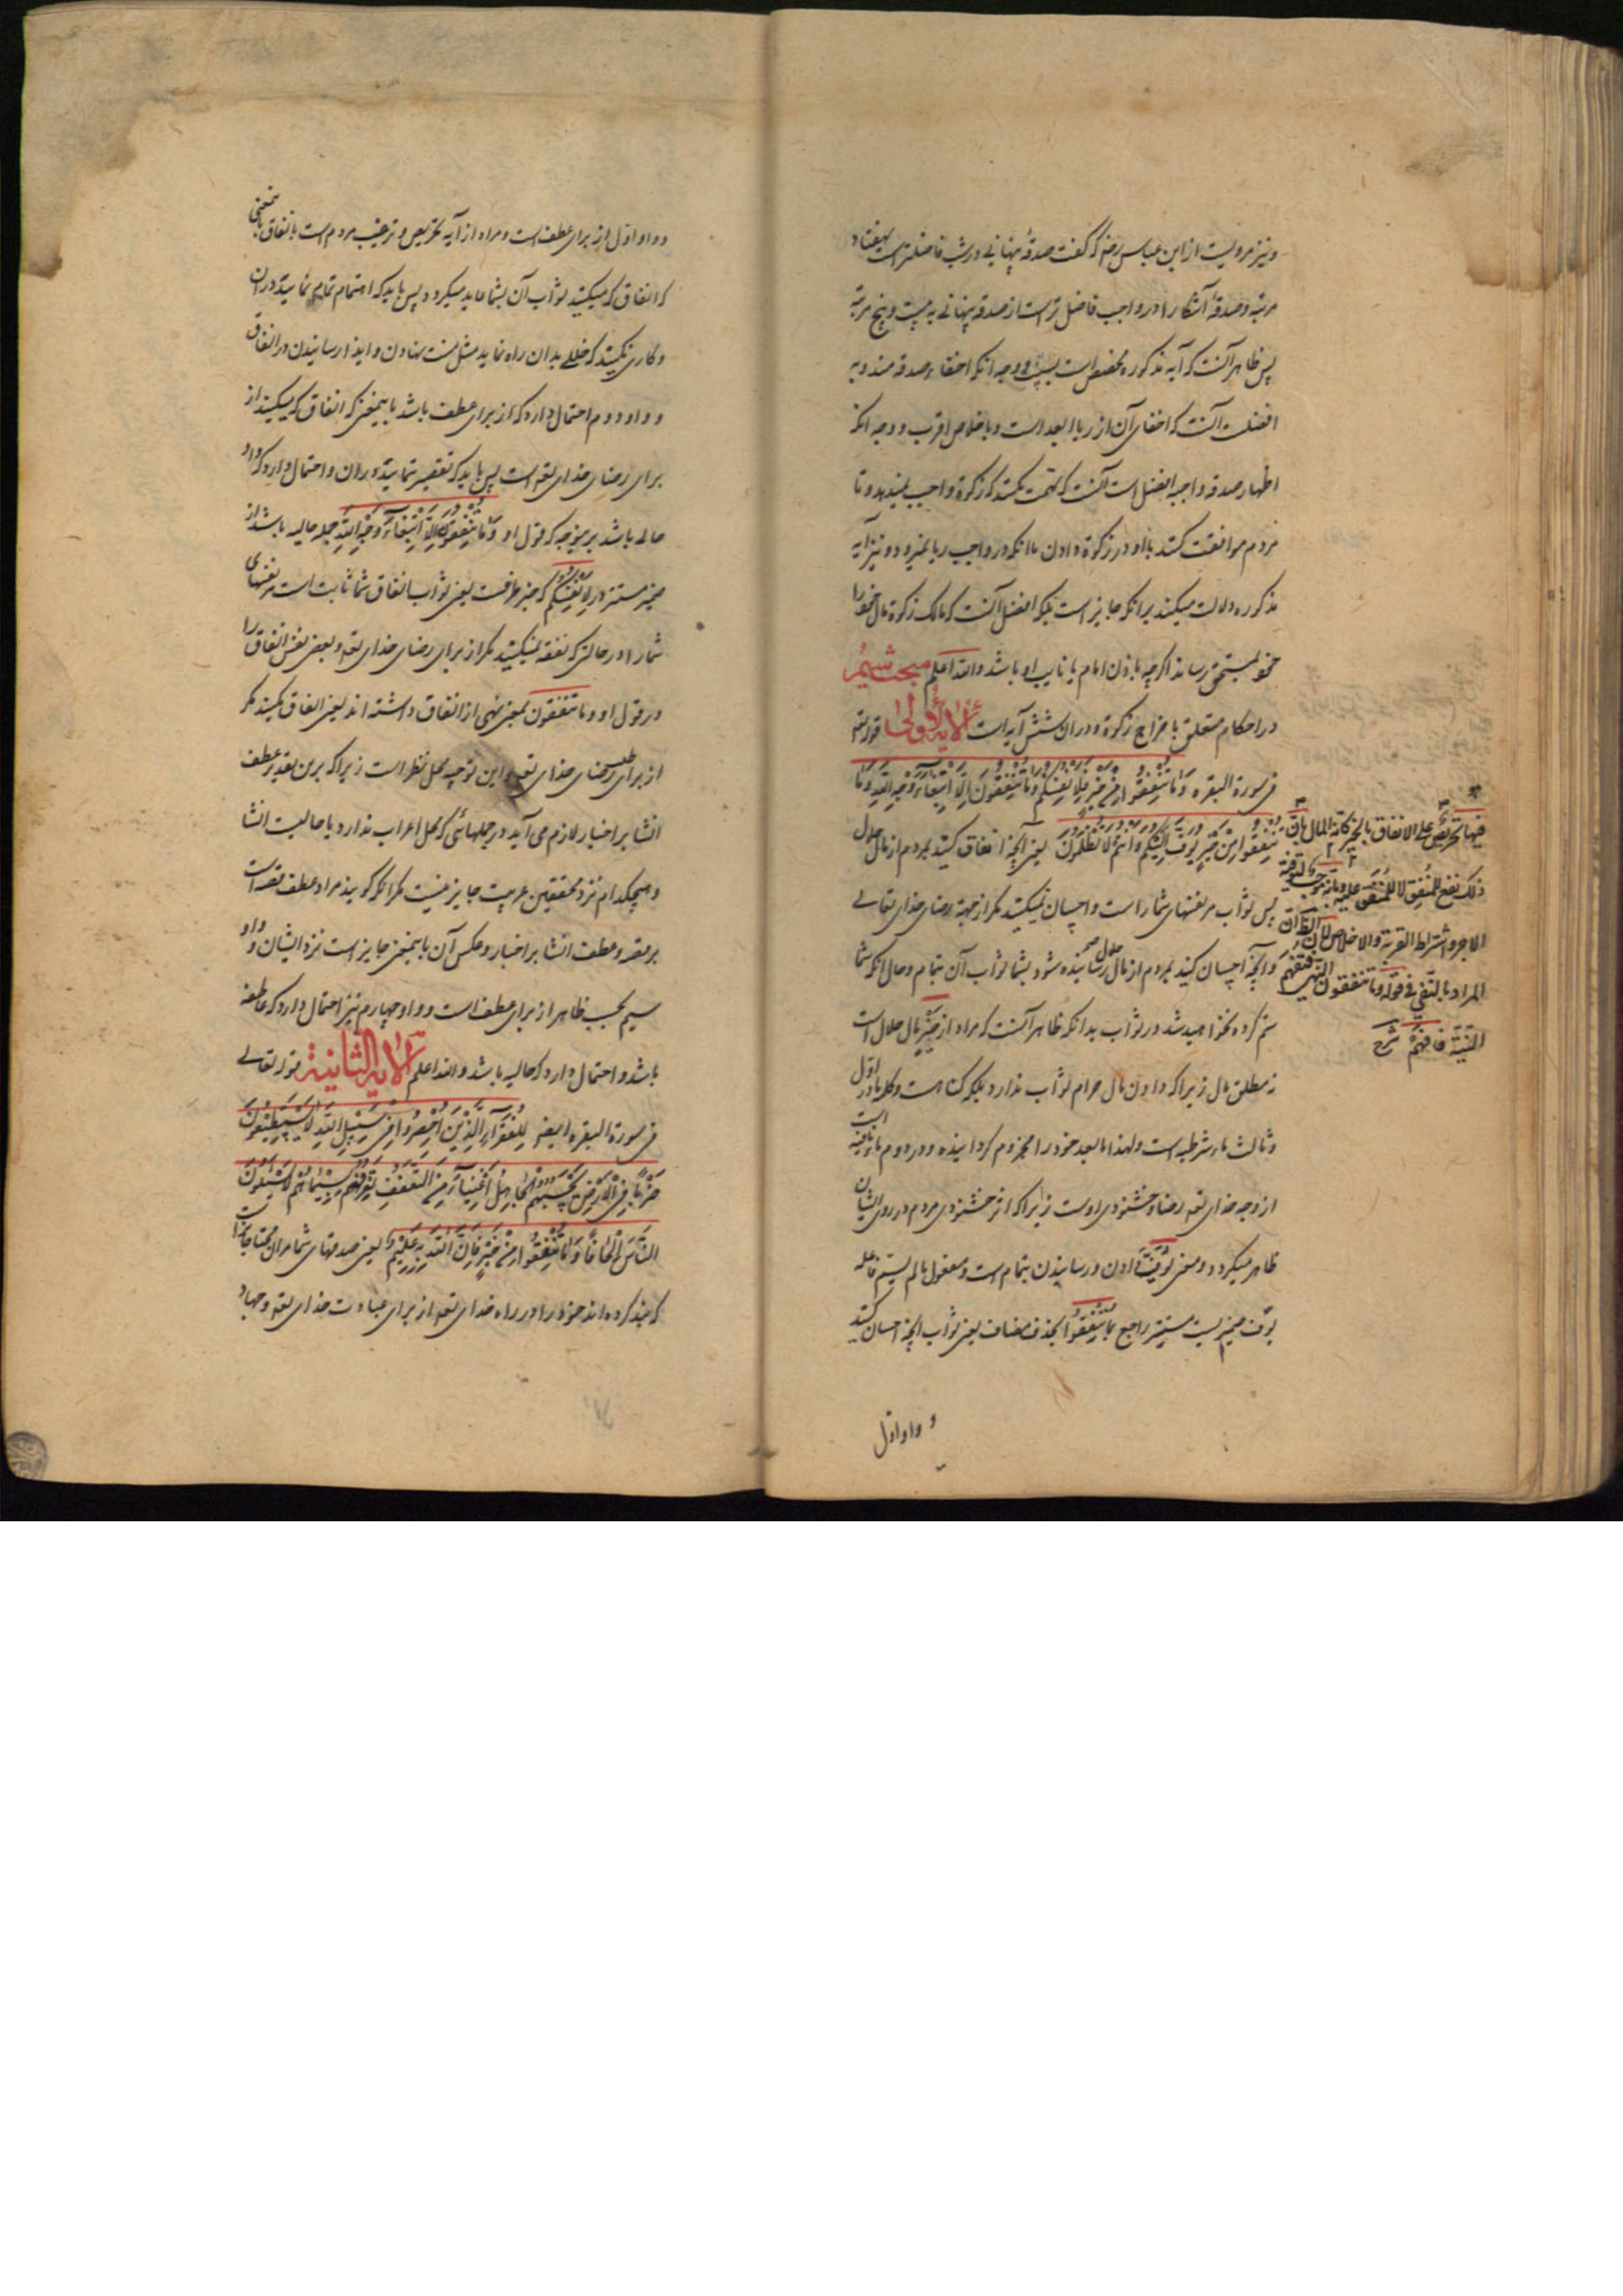 ونیز مرویست از ابن عباس رض که گفت صدقهٔ پنهانی در شب فاضلتر است بهفتاد
مرتبه و صدقهٔ آشکارا در واجب فاضل تر است از صدقه پنهانی به بیست و پنج مرتبه
پس ظاهر آنست که آیه مذکوره مخصص است بسنت و وجه آنکه اخفاء صدقه مندوبه
افضلست آنست که اخفای آن از ریا ابعد است و باخلاص اقرب و وجه آنکه
اظهار صدقه واجبه افضل است آنست که تهمت نکنند که زکوة واجب نمیدهد و تا
مردم موافقت کنند با او در زکوة دادن با آنکه در واجب ریا نمیرود و نیز آیه
مذکوره دلالت میکند بر آنکه جایز است بلکه افضل آنست که مالک زکوة مال خود را
خود بمستحق رساند اگرچه باذن امام یا نایب او باشد والله اعلم مبحث سیم
در احکام متعلق باخراج زکوة و در ان شش آیه است الآیة الاولی قوله تعه
فی سورة البقره وَمَا تُنْفِقُوا مِنْ خَیْرٍ فَلِاَنْفُسِکُمْ وَمَا تُنْفِقُونَ اِلَّا ابْتِغَاءَ وَجْهِ اللّٰهِ وَمَا
تُنْفِقُوا مِنْ خَیْرٍ یُوَفَّ اِلَیْکُمْ وَاَنْتُمْ لَا تُظْلَمُونَ یعنی آنچه انفاق کنید بمردم از مال حلال
پس ثواب مر نفسهای شما راست و احسان نمیکنید مگر از جهة رضای خدای تعالی
و آنچه احسان کنید بمردم از مال حلال رسانیده شود بشما ثواب آن بتمام و حال آنکه شما
ستم کرده نخواهید شد در ثواب بدانکه ظاهر آنست که مراد از خیر مال حلال است
نه مطلق مال زیرا که دادن مال حرام ثواب ندارد بلکه گناه است و کلمه ما در اول
و ثالث ماء شرطیه است ولهذا ما بعد خود را مجزوم گردانیده و در دوم ماء نافیه است
از وجه خدای تعه رضا و خشنودی اوست زیرا که اثر خشنودی مردم در روی ایشان
ظاهر میگردد و معنی توفیه دادن و رسانیدن بتمام است و مفعول ما لم یسم فاعله
یوف ضمیریست مستتر راجع بما تنفقوا بحذف مضاف یعنی ثواب آنچه احسان کنید
و واو اول
فیها تحریص علی الانفاق بالخیر کانه المال بان
ذلک نفع للمنفق لا للمنفق علیه وبانه یوجب توفیة
الاجر و اشتراط القربة والاخلاص لان الظ ان
المراد بالنفی فی قوله وما تنفقون النهی فتفهم
النیة فافهم شرح
و واو اول از برای عطف است و مراد از آیه تحریص و ترغیب مردم است بانفاق بمعنی
که انفاق که میکنید ثواب آن بشما عاید میگردد پس باید که اهتمام تمام نمایید در ان
و کاری نکنید که خللی بدان راه نماید مثل منت نهادن و ایذا رسانیدن در انفاق
و واو دوم احتمال دارد که از برای عطف باشد باینمعنی که انفاق که میکنید از
برای رضای خدای تعه است پس باید که تقصیر ننمایید در ان و احتمال دارد که واو
حالی باشد بر اینوجه که قول او وَمَا تُنْفِقُونَ اِلَّا ابْتِغَاءَ وَجْهِ اللّٰهِ جمله حالیه باشد از
ضمیر مستتر در لِاَنْفُسِکُمْ که خبر ظرفست یعنی ثواب انفاق شما ثابت است مر نفسهای
شما را در حالتی که نفقه نمیکنید مگر از برای رضای خدای تعه و بعضی نفس انفاق را
در قول او وما تنفقون بمعنی نهی از انفاق داشته اند یعنی انفاق مکنید مگر
از برای طلب رضای خدای تعه و این توجیه محل نظر است زیرا که برین تقدیر عطف
انشا بر اخبار لازم می آید در جملهائی که محل اعراب ندارد یا حالیت انشا
و هیچکدام نزد محققین عربیت جایز نیست مگر آنکه گویند مراد عطف قصه است
بر قصه و عطف انشا بر اخبار و عکس آن باینمعنی جایز است نزد ایشان و واو
سیم بحسب ظاهر از برای عطف است و واو چهارم نیز احتمال دارد که عاطفه
باشد و احتمال دارد که حالیه باشد والله اعلم الآیة الثانیة قوله تعالی
فی سورة البقره ایضو لِلْفُقَرَاءِ الَّذِینَ اُحْصِرُوا فِی سَبِیلِ اللّٰهِ لَا یَسْتَطِیعُونَ
ضَرْبًا فِی الْاَرْضِ یَحْسَبُهُمُ الْجَاهِلُ اَغْنِیَاءَ مِنَ التَّعَفُّفِ تَعْرِفُهُمْ بِسِیمَاهُمْ لَا یَسْئَلُونَ
النَّاسَ اِلْحَافًا وَمَا تُنْفِقُوا مِنْ خَیْرٍ فَاِنَّ اللّٰهَ بِهِ عَلِیمٌ یعنی صدقهای شما مران محتاجانراست
که بند کرده اند خود را در راه خدای تعه از برای عبادت خدای تعه و جهاد